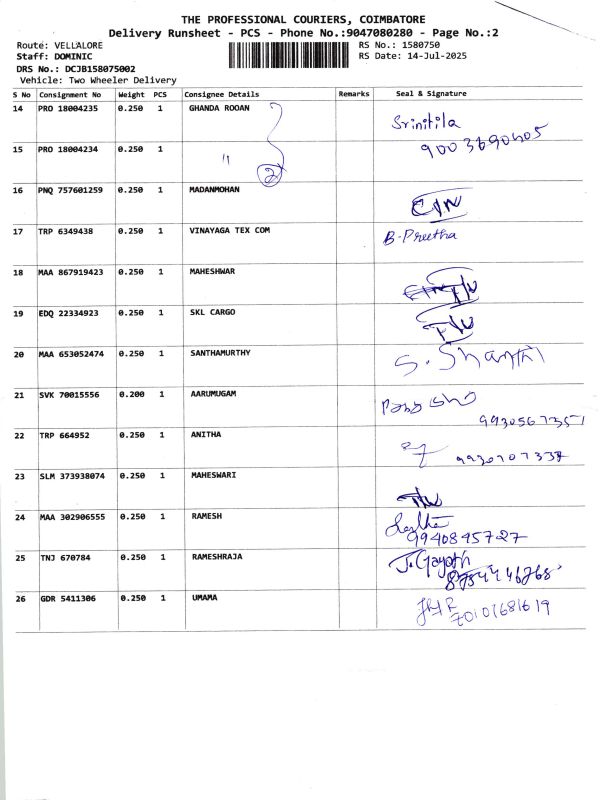 THE PROFESSIONAL COURIERS, COIMBATORE
Delivery Runsheet - PCS - Phone No.:9047080280 - Page No.:2
Route: VELLALORE RS No.: 1580750
Staff: DOMINIC RS Date: 14-Jul-2025
DRS No.: DCJB158075002
Vehicle: Two Wheeler Delivery
S No Consignment No Weight PCS Consignee Details Remarks Seal & Signature
14 PRO 18004235 0.250 1 GHANDA ROOAN Srinitila
9003690605
15 PRO 18004234 0.250 1 " 2
16 PNQ 757601259 0.250 1 MADANMOHAN
17 TRP 6349438 0.250 1 VINAYAGA TEX COM B-Preetha
18 MAA 867919423 0.250 1 MAHESHWAR
19 EDQ 22334923 0.250 1 SKL CARGO
20 MAA 653052474 0.250 1 SANTHAMURTHY S. Shanthi
21 SVK 70015556 0.200 1 AARUMUGAM
9930567351
22 TRP 664952 0.250 1 ANITHA
9930707337
23 SLM 373938074 0.250 1 MAHESWARI
24 MAA 302906555 0.250 1 RAMESH
9940845727
25 TNJ 670784 0.250 1 RAMESHRAJA J. Gayath
8754446768
26 GDR 5411306 0.250 1 UMAMA